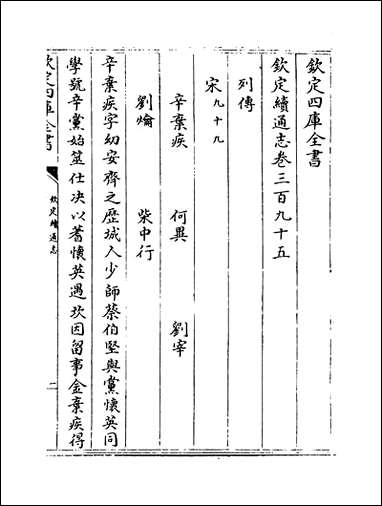 欽定四庫全書
欽定續通志卷三百九十五
列傳
宋九十九
辛棄疾 何異 劉宰
劉爚 柴中行
辛棄疾字幼安齊之歷城人少師蔡伯堅與黨懷英同
學號辛黨始筮仕決以蓍懷英遇坎因留事金棄疾得
欽定四庫全書
欽定續通志